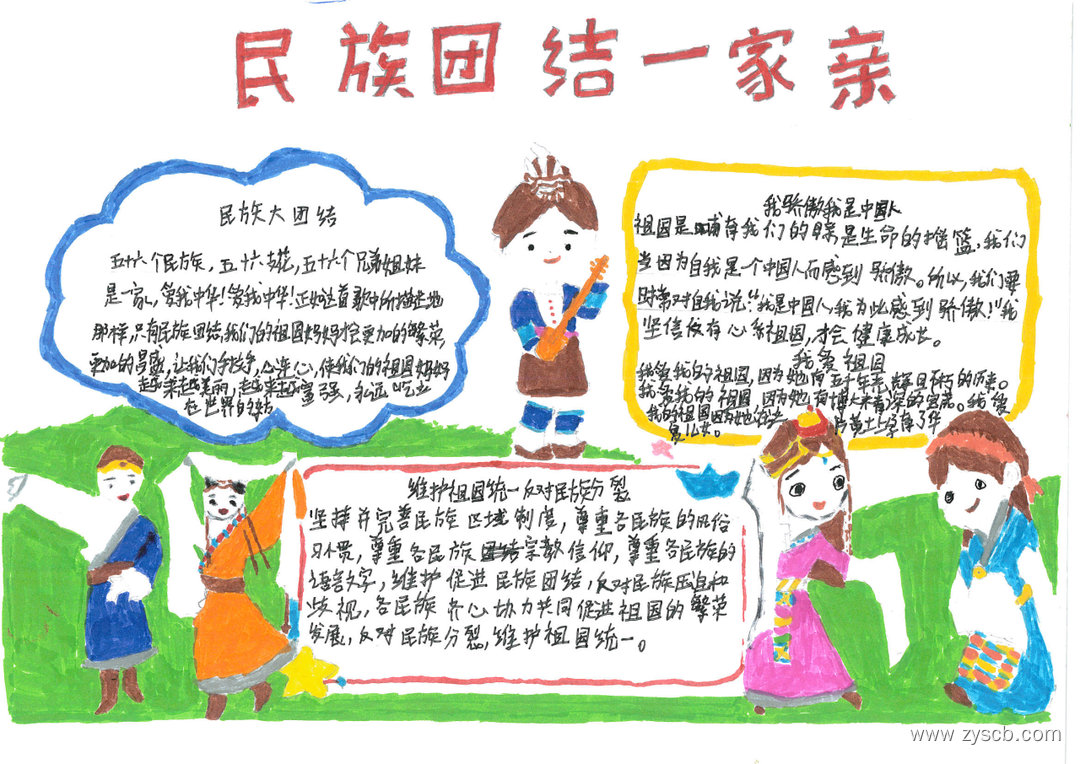 民族团结一家亲
民族大团结
五十六个民族，五十六支花，五十六个兄弟姐妹
是一家，爱我中华！爱我中华！正如这首歌中所描述地
那样，只有民族团结，我们的祖国妈妈才会更加的繁荣，
更加的昌盛，让我们手拉手，心连心，使我们的祖国妈妈
越来越美丽，越来越富强，永远屹立
在世界的东方
我骄傲我是中国人
祖国是哺育我们的是生命的摇篮，我们
当因为自我是一个中国人而感到骄傲。所以，我们要
时常对自我说："我是中国人，我为此感到骄傲！"我
坚信仅有心系祖国，才会健康成长。
我爱祖国
我爱我的祖国，因为她有五千年光辉的历史。
我爱我的祖国，因为她有博大精深的。我爱
我的祖国因为她
儿女。
维护祖国统一反对民族分裂
坚持并完善民族区域制度，尊重各民族的风俗
习惯，尊重各民族宗教信仰，尊重各民族的
语言文字，维护促进民族团结，反对民族压迫和
歧视，各民族齐心协力共同促进祖国的繁荣
发展，反对民族分裂，维护祖国统一。
www.zyscb.com